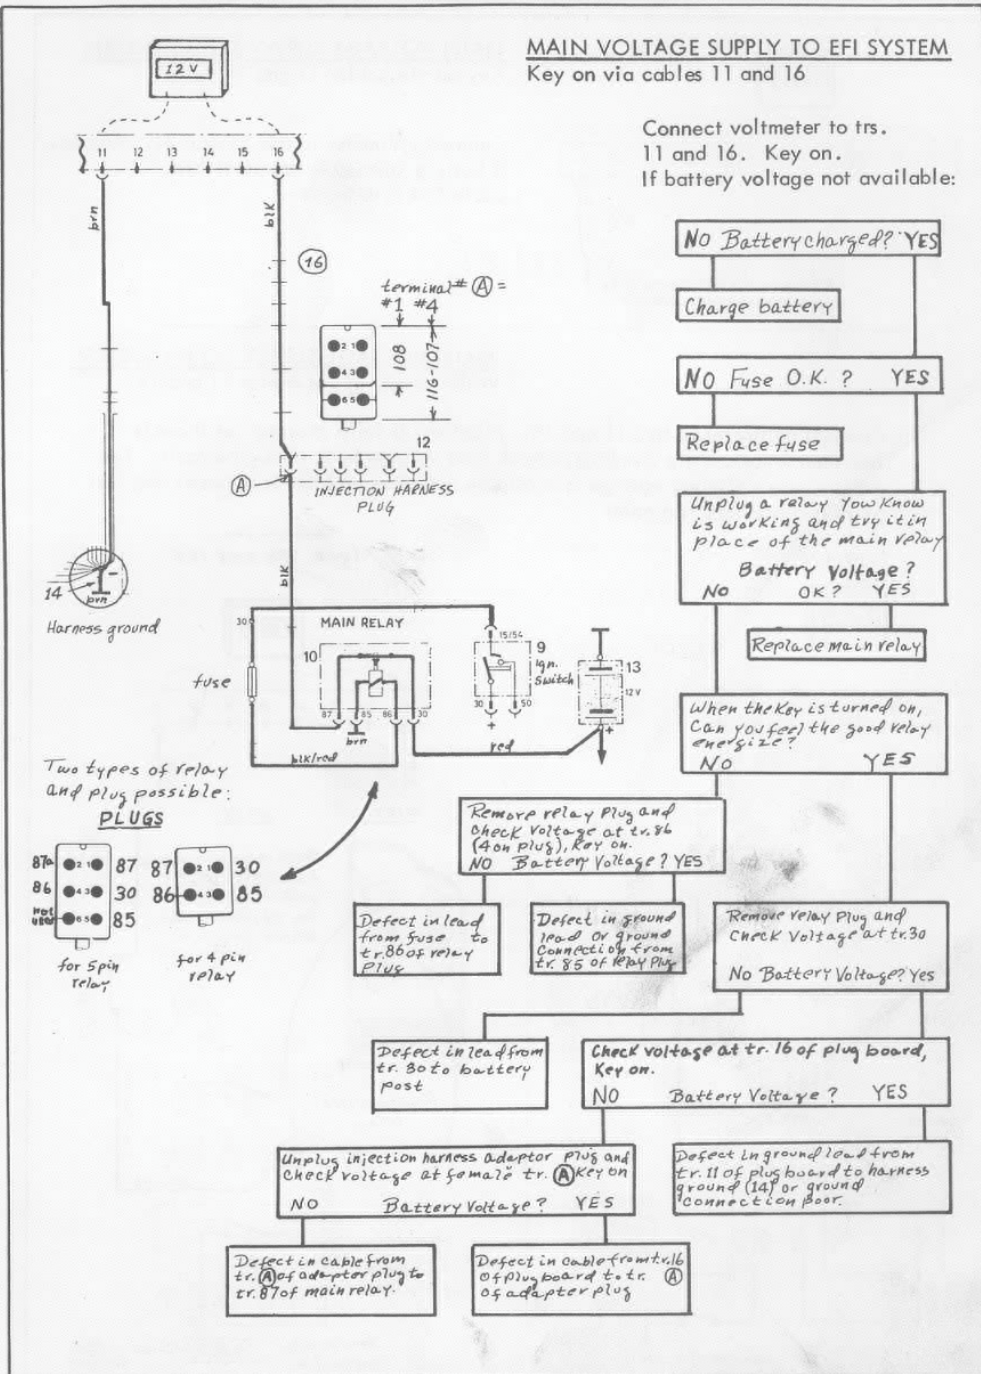 MAIN VOLTAGE SUPPLY TO EFI SYSTEM
Key on via cables 11 and 16
Connect voltmeter to trs.
11 and 16. Key on.
If battery voltage not available:
12V
11 12 13 14 15 16
brn
blk
16
terminal# A =
#1 #4
2 1
4 3
6 5
108
116-107
12
A
INJECTION HARNESS
PLUG
blk
14
brn
Harness ground
30
MAIN RELAY
10
fuse
87 85 86 30
brn
blk/red
red
15/54
9
Ign.
Switch
30 50
+
13
12V
+
Two types of relay
and plug possible:
PLUGS
87a 2 1 87
86 4 3 30
Not used 6 5 85
for 5pin
relay
87 2 1 30
86 4 3 85
for 4 pin
relay
NO Battery charged? YES
Charge battery
NO Fuse O.K. ? YES
Replace fuse
Unplug a relay You Know
is working and try it in
place of the main relay
Battery Voltage?
NO OK? YES
Replace main relay
When the Key is turned on,
Can you feel the good relay
energize?
NO YES
Remove relay Plug and
Check Voltage at tr. 86
(4 on plug), Key on.
NO Battery Voltage? YES
Defect in lead
from fuse to
tr. 86 of relay
Plug
Defect in ground
lead or ground
Connection from
tr. 85 of relay Plug
Remove relay Plug and
Check Voltage at tr.30
No Battery Voltage? Yes
Defect in lead from
tr. 30 to battery
post
Check voltage at tr. 16 of plug board,
Key on.
NO Battery Voltage? YES
Unplug injection harness adaptor plug and
Check voltage at female tr. A Key on
NO Battery Voltage? YES
Defect in ground lead from
tr. 11 of plug board to harness
ground (14) or ground
connection poor.
Defect in cable from
tr. A of adapter plug to
tr. 87 of main relay.
Defect in cable from tr.16
Of plug board to tr. A
of adapter plug